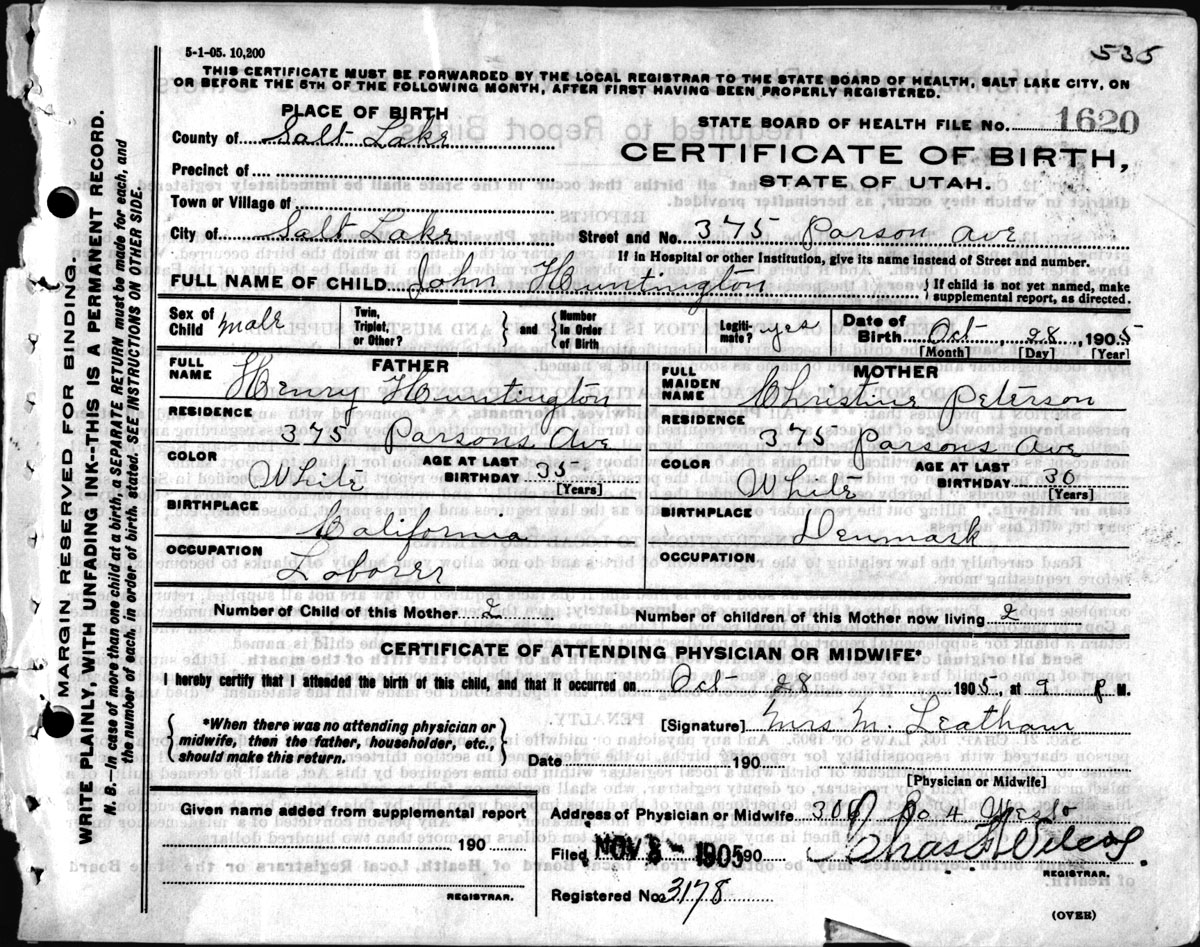 5-1-05. 10,200
535
THIS CERTIFICATE MUST BE FORWARDED BY THE LOCAL REGISTRAR TO THE STATE BOARD OF HEALTH, SALT LAKE CITY, ON
OR BEFORE THE 5TH OF THE FOLLOWING MONTH, AFTER FIRST HAVING BEEN PROPERLY REGISTERED.
PLACE OF BIRTH
County of Salt Lake
Precinct of
Town or Village of
City of Salt Lake
STATE BOARD OF HEALTH FILE NO. 1620
CERTIFICATE OF BIRTH,
STATE OF UTAH.
Street and No. 375 Parson Ave
If in Hospital or other Institution, give its name instead of Street and number.
FULL NAME OF CHILD John Huntington { If child is not yet named, make
supplemental report, as directed.
Sex of Child male
Twin, Triplet, or Other? } and { Number in Order of Birth
Legitimate? yes
Date of Birth Oct, 28, 1905
[Month] [Day] [Year]
FATHER
FULL NAME Henry Huntington
RESIDENCE
375 Parsons Ave
COLOR White AGE AT LAST BIRTHDAY 35
[Years]
BIRTHPLACE California
OCCUPATION Laborer
MOTHER
FULL MAIDEN NAME Christine Peterson
RESIDENCE
375 Parsons Ave
COLOR White AGE AT LAST BIRTHDAY 30
[Years]
BIRTHPLACE Denmark
OCCUPATION
Number of Child of this Mother 2
Number of children of this Mother now living 2
CERTIFICATE OF ATTENDING PHYSICIAN OR MIDWIFE*
I hereby certify that I attended the birth of this child, and that it occurred on Oct 28 1905, at 9 P M.
{ *When there was no attending physician or
midwife, then the father, householder, etc.,
should make this return. }
[Signature] Mrs M. Leatham
Date 190
[Physician or Midwife]
Given name added from supplemental report
190
REGISTRAR.
Address of Physician or Midwife So 4 West
Filed NOV 3 - 1905 90 Chas Wilcox.
REGISTRAR.
Registered No. 3178
(OVER)
MARGIN RESERVED FOR BINDING.
WRITE PLAINLY, WITH UNFADING INK--THIS IS A PERMANENT RECORD.
N. B.--In case of more than one child at a birth, a SEPARATE RETURN must be made for each, and
the number of each, in order of birth, stated. SEE INSTRUCTIONS ON OTHER SIDE.